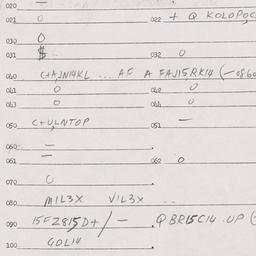 020 —
021 O 022 + Q KOLOPOC
030 O
031 $ 032 O
040 C+AJNI4KL ... AF A FAJ15,RK14 (-0860
041 O 042 O
043 O 044 O
050 C+ULNTOP 051 —
060 —
061 — 062 O
070 O
080 MIL3X VIL3X ..
090 15FZ815D+/— . QBR15C14 .UP (
100 GOL14